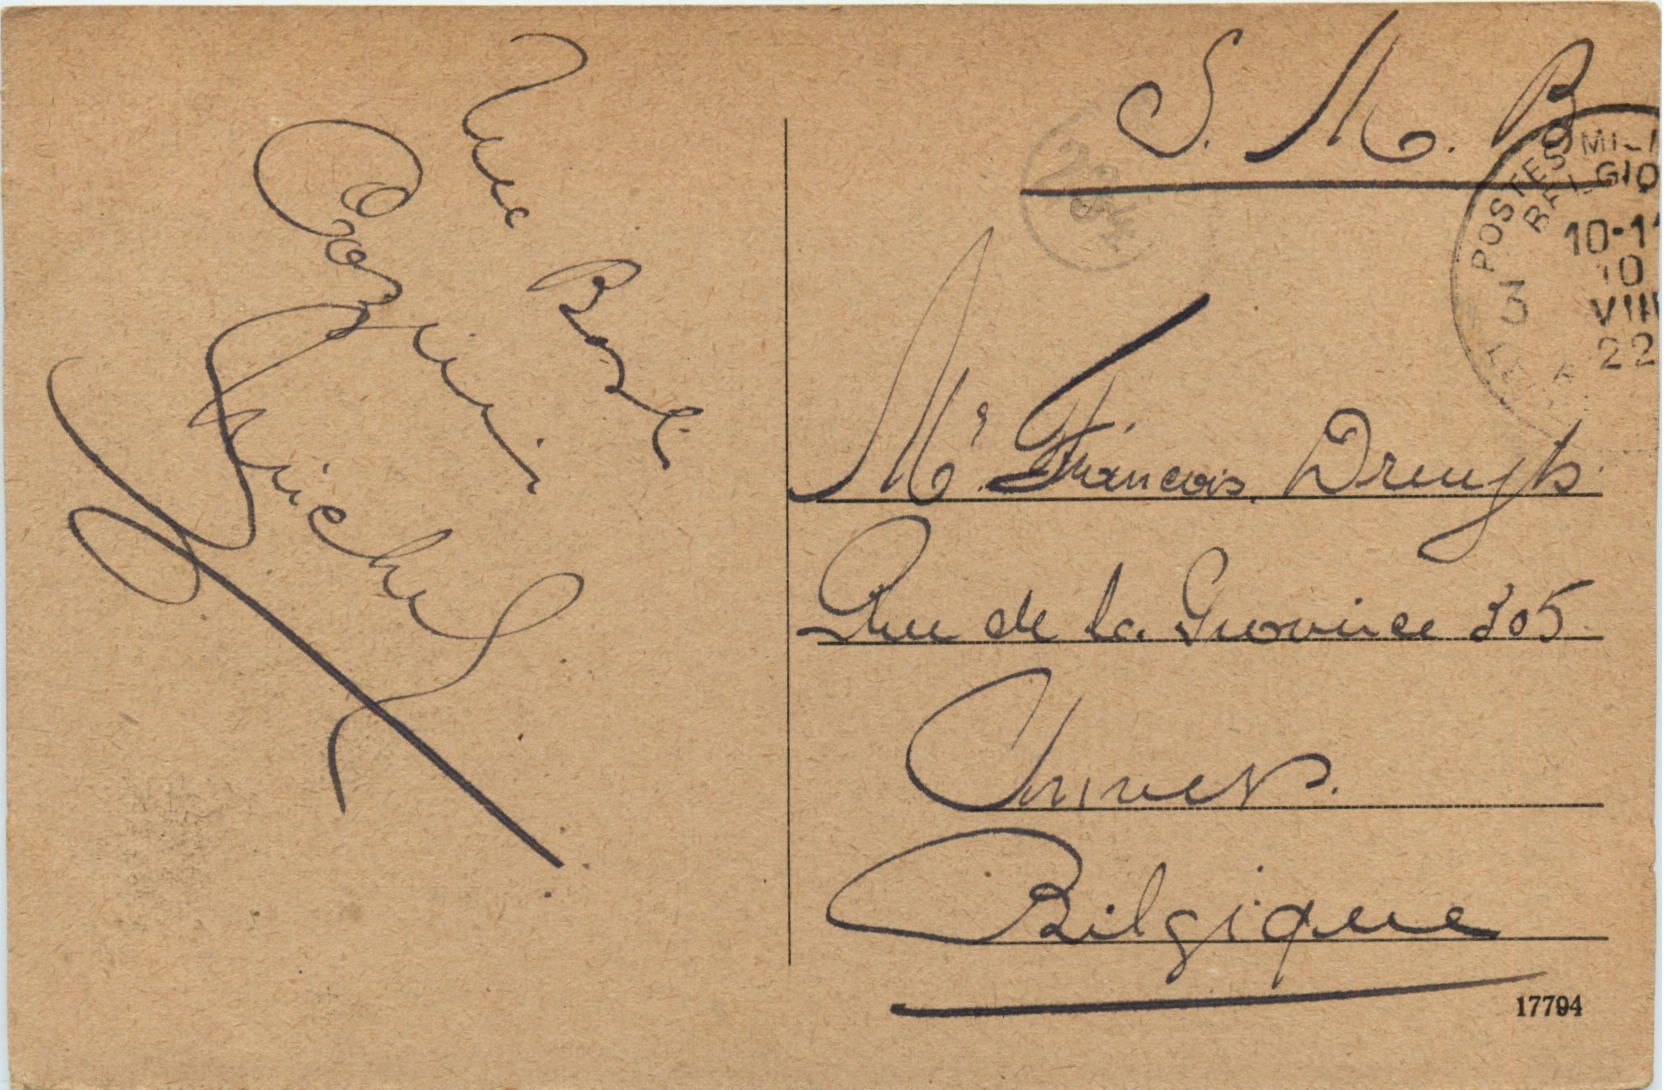 Une Bonne
Cousin
Michel
S. M. B
POSTES MILI
BELGIQ
10-11
10
VIII
22
3
Mr. François Druyts.
Rue de la Province 305
Anvers.
Belgique
17794